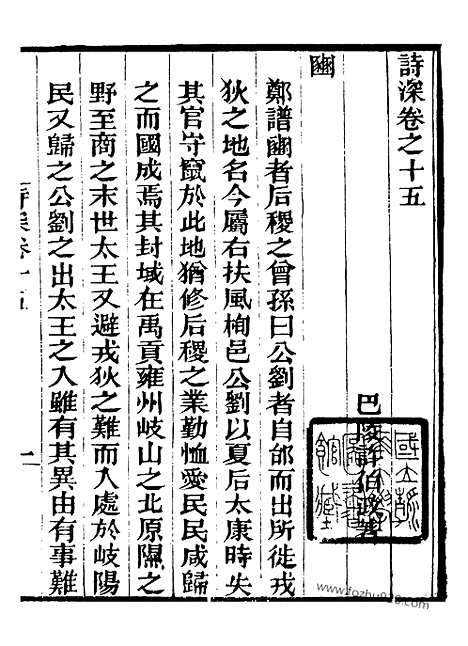 詩深卷之十五
巴陵許伯政著
豳
鄭譜豳者后稷之曾孫曰公劉者自邰而出所徙戎
狄之地名今屬右扶風栒邑公劉以夏后太康時失
其官守竄於此地猶修后稷之業勤恤愛民民咸歸
之而國成焉其封域在禹貢雍州岐山之北原隰之
野至商之末世太王又避戎狄之難而入處於岐陽
民又歸之公劉之出太王之入雖有其異由有事難
詩深卷十五
一
www.fozhu920.com